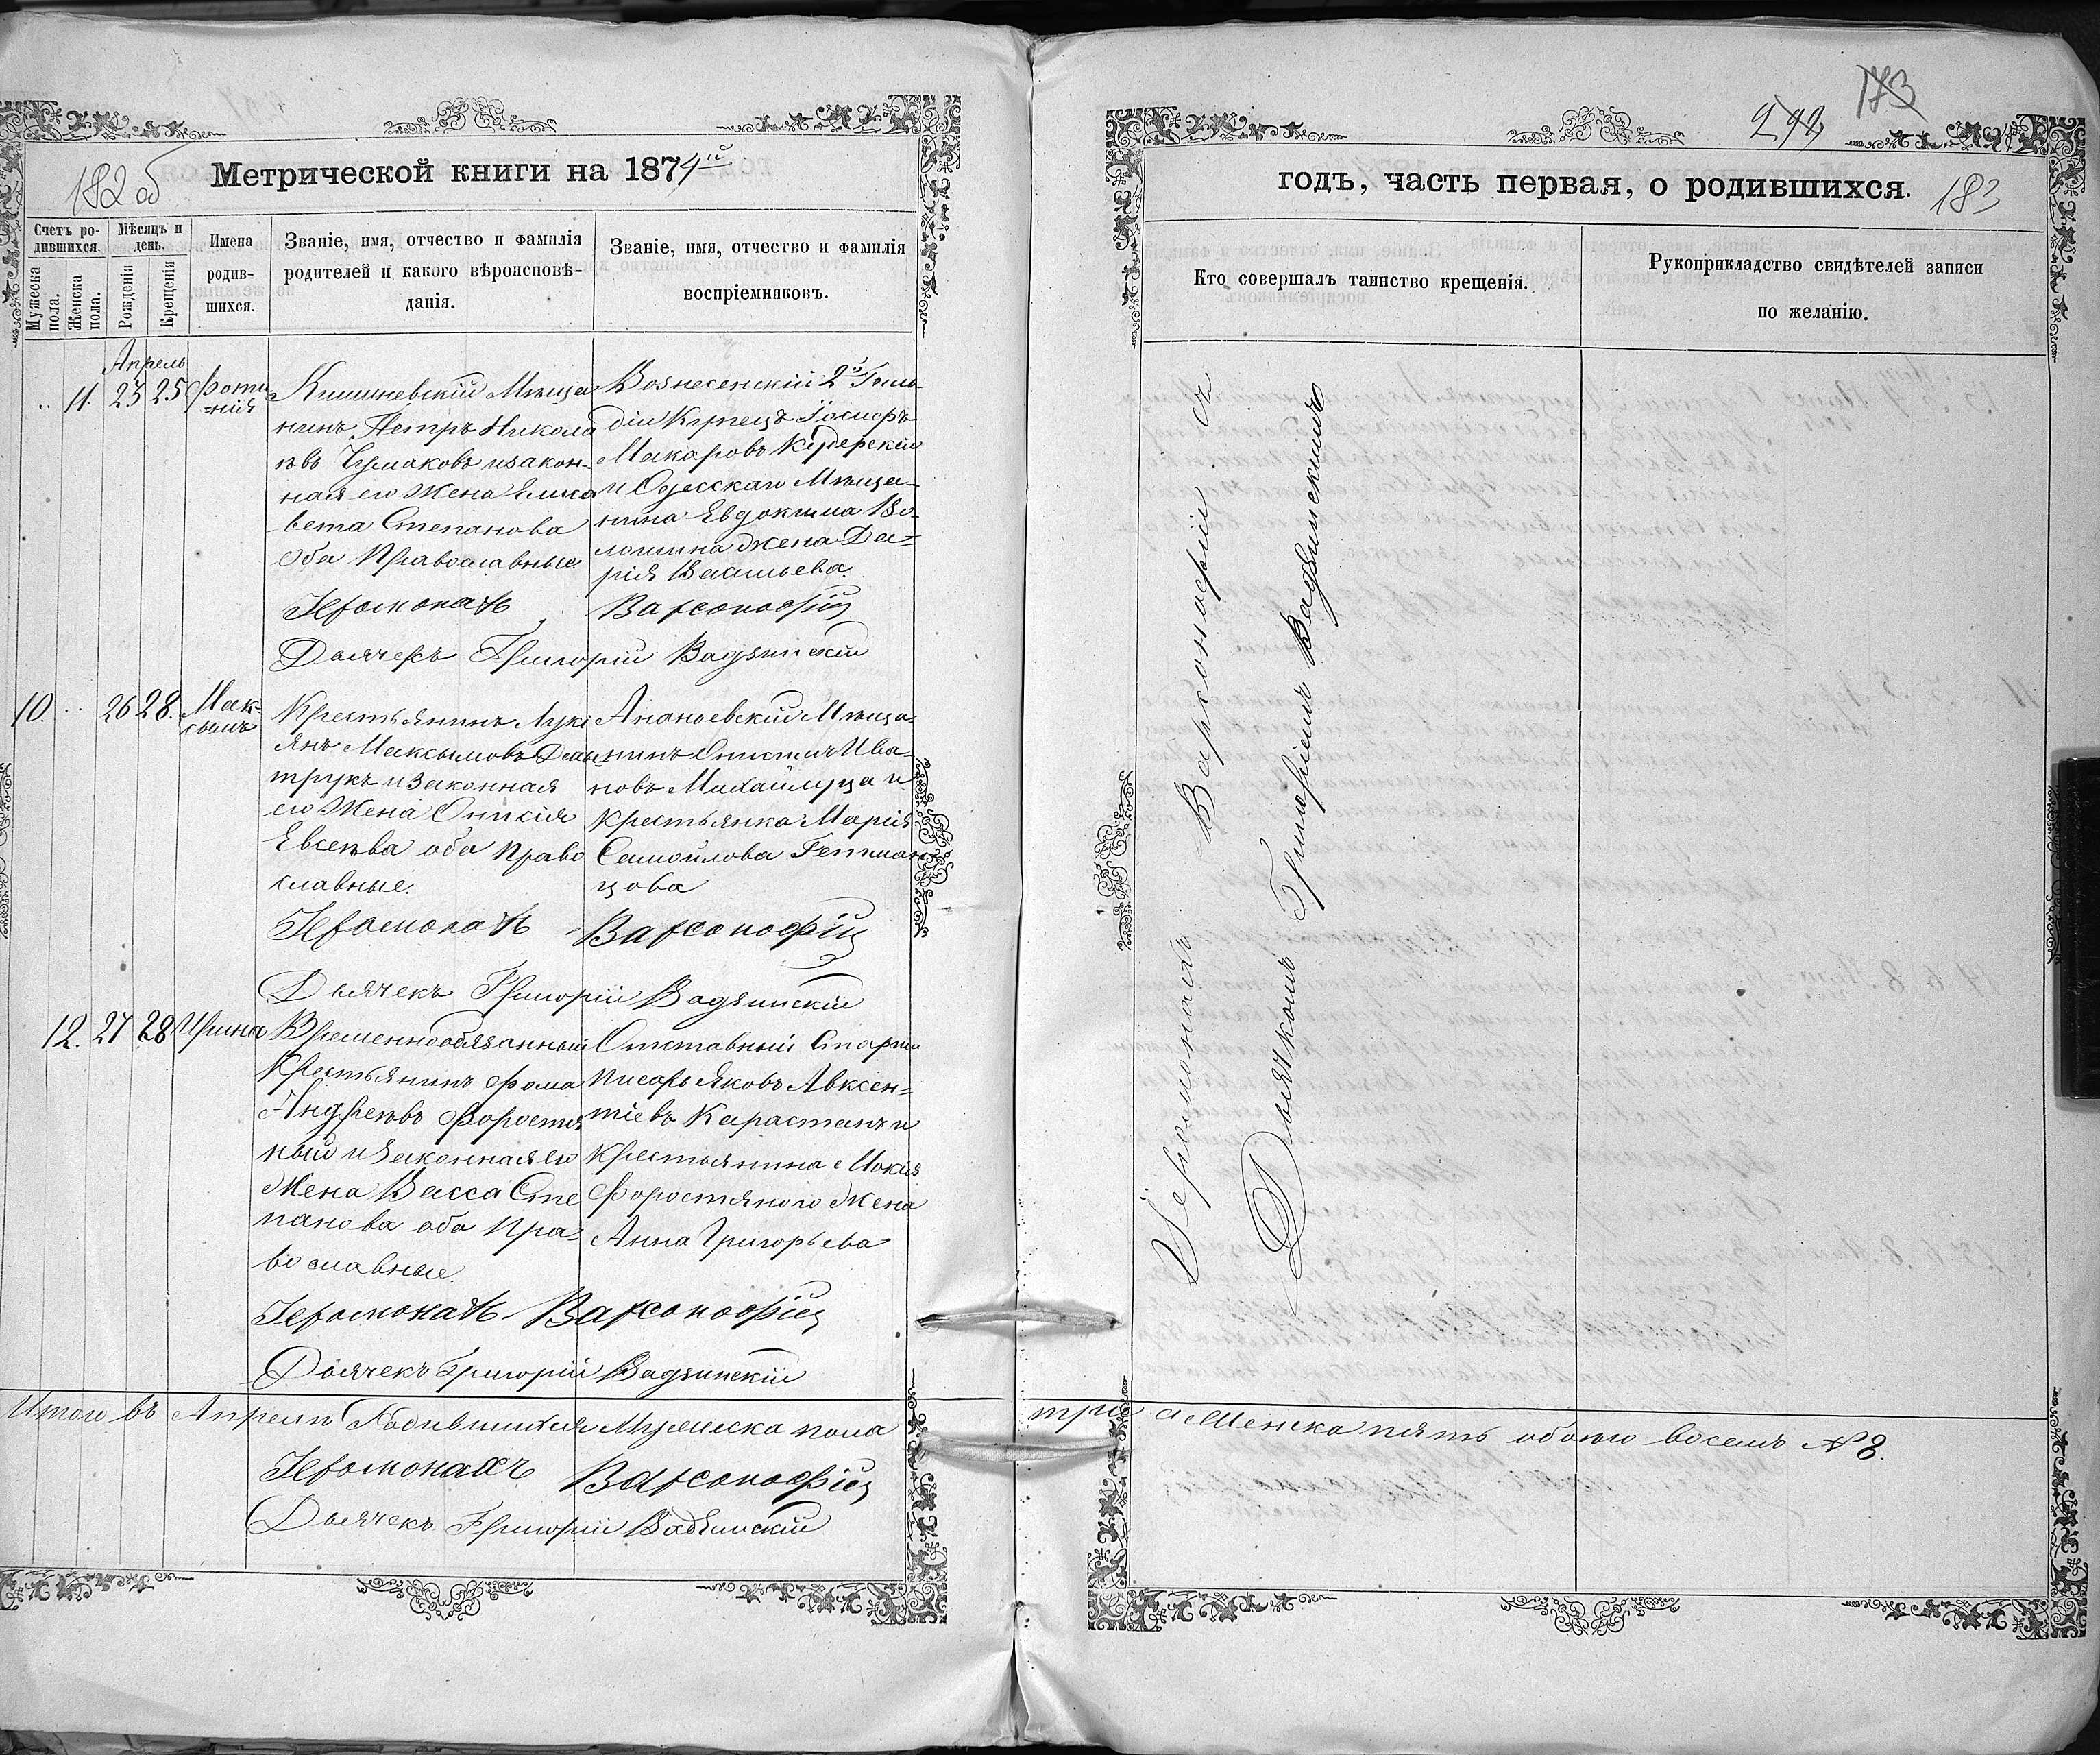 182 об
Метрической книги на 1874й
Счетъ ро-
дившихся.
Мужеска пола.
Женска пола.
Мѣсяцъ и
день.
Рожденія
Крещенія
Имена
родив-
шихся.
Званіе, имя, отчество и фамилія
родителей и какого вѣроисповѣ-
данія.
Званіе, имя, отчество и фамилія
воспріемниковъ.
Апрель
11. 23 25 Фоти-
нія
Кишиневскій Мѣща
нинъ Петръ Никола
евъ Чумаковъ и закон-
ная его Жена Елиса
вета Степанова
Оба Православные
Вознесенскій 2й Гиль
діи Купецъ Іосифъ
Макаровъ
и Одесскаго Мѣща-
нина Евдокима Во-
лошина жена Да=
рія Васильева.
Іеромонахъ Варсонофій
Дьячекъ Григорій Вадзинскій
10. .. 26 28. Мак-
сымъ
Крестьянинъ Луки
янъ Максымовъ Дмы
трукъ и Законная
его Жена Онисія
Евсеева оба Право
славные.
Ананьевскій Мѣща-
нинъ Ива-
новъ Михайлуца и
крестьянка Марія
Самойлова Гетман
цова
Іеромонахъ Варсонофій
Дьячекъ Григорій Вадзинскій
12. 27 28 Ирина
Временнообязанный
Крестьянинъ Фома
Андреевъ Форостя
ный и Законная его
Жена Васса Сте
панова оба Пра-
вославные.
Отставный Старш
писарь Яковъ Авксен=
тіевъ Карастанъ и
Крестьянина Мокія
Форостяного Жена
Анна Григорьева
Іеромонахъ Варсонофій
Дьячекъ Григорій Вадзинскій
Итого въ Апреле Родившихся Мужеска пола
Іеромонахъ Варсонофій
Дьячекъ Григорій Вадзинскій
173
292
годъ, часть первая, о родившихся.
183
Кто совершалъ таинство крещенія.
Рукоприкладство свидѣтелей записи
по желанію.
Іеромонахъ Варсонофій съ
Дьячкомъ Григоріемъ Вадзинскимъ
три а Женска пять обоего восемъ №8.